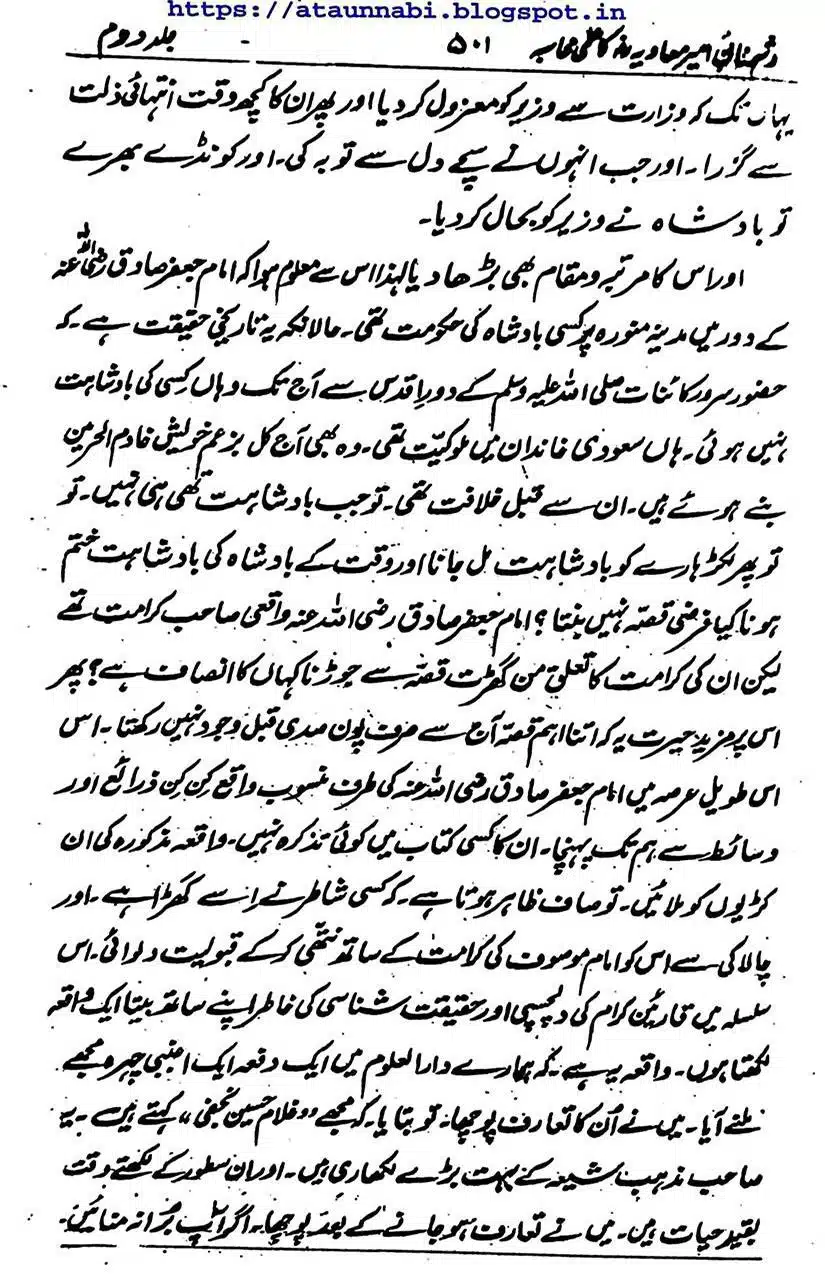 https://ataunnabi.blogspot.in
دشمنانِ امیر معاویہؓ کا علمی محاسبہ ۵۰۱ جلد دوم
یہاں تک کہ وزارت سے وزیر کو معزول کر دیا اور پھر ان کا کچھ وقت انتہائی ذلت
سے گزرا۔ اور جب انہوں نے سچے دل سے توبہ کی۔ اور کونڈے بھرے
تو بادشاہ نے وزیر کو بحال کر دیا۔
اور اس کا مرتبہ و مقام بھی بڑھا دیا لہذا اس سے معلوم ہوا کہ امام جعفر صادق رضی اللہ عنہ
کے دور میں مدینہ منورہ پر کسی بادشاہ کی حکومت تھی۔ حالانکہ یہ تاریخی حقیقت ہے۔ کہ
حضور سرور کائنات صلی اللہ علیہ وسلم کے دورِ اقدس سے آج تک وہاں کسی کی بادشاہت
نہیں ہوئی۔ ہاں سعودی خاندان میں ملوکیّت تھی۔ وہ بھی آج کل بزعم خویش خادم الحرمین
بنے ہوئے ہیں۔ ان سے قبل خلافت تھی۔ تو جب بادشاہت تھی ہی نہیں۔ تو
تو پھر لکڑہارے کو بادشاہت مل جانا اور وقت کے بادشاہ کی بادشاہت ختم
ہونا کیا فرضی قصّہ نہیں بنتا؟ امام جعفر صادق رضی اللہ عنہ واقعی صاحب کرامت تھے
لیکن ان کی کرامت کا تعلق من گھڑت قصّہ سے جوڑنا کہاں کا انصاف ہے؟ پھر
اس پر مزید حیرت یہ کہ اتنا اہم قصّہ آج سے صرف پون صدی قبل وجود نہیں رکھتا۔ اس
اس طویل عرصہ میں امام جعفر صادق رضی اللہ عنہ کی طرف منسوب واقع کِن کِن ذرائع اور
وسائط سے ہم تک پہنچا۔ ان کا کسی کتاب میں کوئی تذکرہ نہیں۔ واقعہ مذکورہ کی ان
کڑیوں کو ملائیں۔ تو صاف ظاہر ہوتا ہے۔ کہ کسی شاطر نے اسے گھڑا ہے۔ اور
چالاکی سے اس کو امام موصوف کی کرامت کے ساتھ نتھی کر کے قبولیت دلوائی۔ اس
سلسلہ میں قارئین کرام کی دلچسپی اور حقیقت شناسی کی خاطر اپنے ساتھ بیتا ایک واقعہ
لکھتا ہوں۔ واقعہ یہ ہے۔ کہ ہمارے دارالعلوم میں ایک دفعہ ایک اجنبی چہرہ مجھے
ملنے آیا۔ میں نے اُن کا تعارف پوچھا۔ تو بتایا۔ کہ مجھے ’’غلام حسین نجفی‘‘ کہتے ہیں۔ یہ
صاحب مذہب شیعہ کے بہت بڑے لکھاری ہیں۔ اور ان سطور کے لکھتے وقت
بقید حیات ہیں۔ میں نے تعارف ہو جانے کے بعد پوچھا۔ اگر آپ بُرا نہ منائیں۔